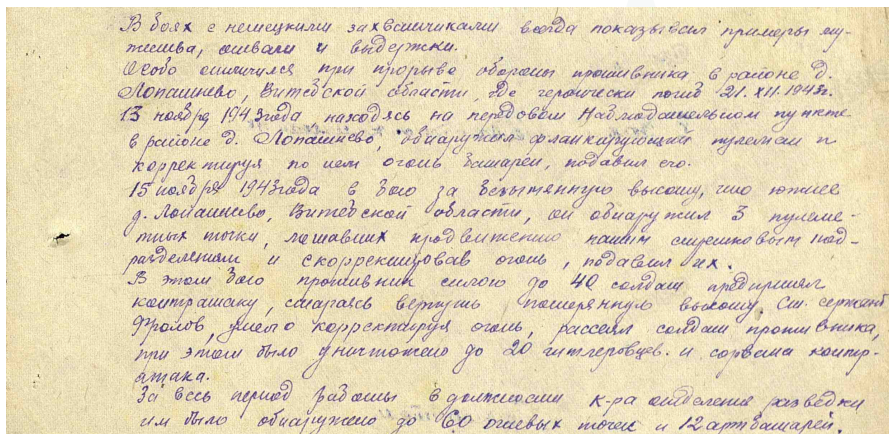 В боях с немецкими захватчиками всегда показывал примеры му-
жества, отваги и выдержки.
Особо отличился при прорыве обороны противника в районе д.
Лопашнево, Витебской области, где героически погиб 21.XII.1943г.
13 ноября 1943 года находясь на передовом Наблюдательном пункте
в районе д. Лопашнево, обнаружил фланкирующий пулемет и
корректируя по нем огонь батареи, подавил его.
15 ноября 1943 года в бою за безымянную высоту, что южнее
д. Лопашнево, Витебской области, он обнаружил 3 пулеме-
тных точки, мешавших продвижению нашим стрелковым под-
разделениям и скорректировав огонь, подавил их.
В этом бою противник силою до 40 солдат предпринял
контратаку, стараясь вернуть потерянную высоту. Ст. сержант
Фролов, умело корректируя огонь, рассеял солдат противника,
при этом было уничтожено до 20 гитлеровцев. и сорвана контр-
атака.
За весь период работы в должности к-ра отделения разведки
им было обнаружено до 60 огневых точек и 12 артбатарей.